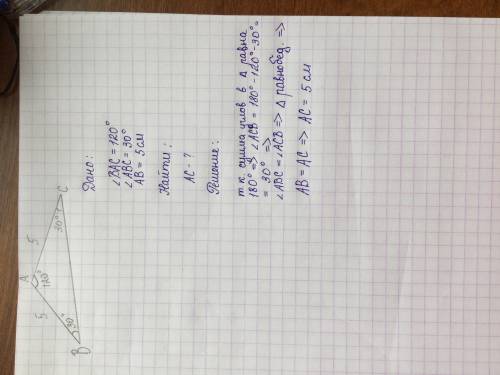 A
5
5
120°
30°
30°
B
C
Дано:
∠BAC = 120°
∠ABC = 30°
AB = 5 см
Найти:
AC - ?
Решение:
т к сумма углов в Δ равна
180° => ∠ACB = 180° - 120° - 30° =
= 30° =>
∠ABC = ∠ACB => Δ равнобед. =>
AB = AC => AC = 5 см